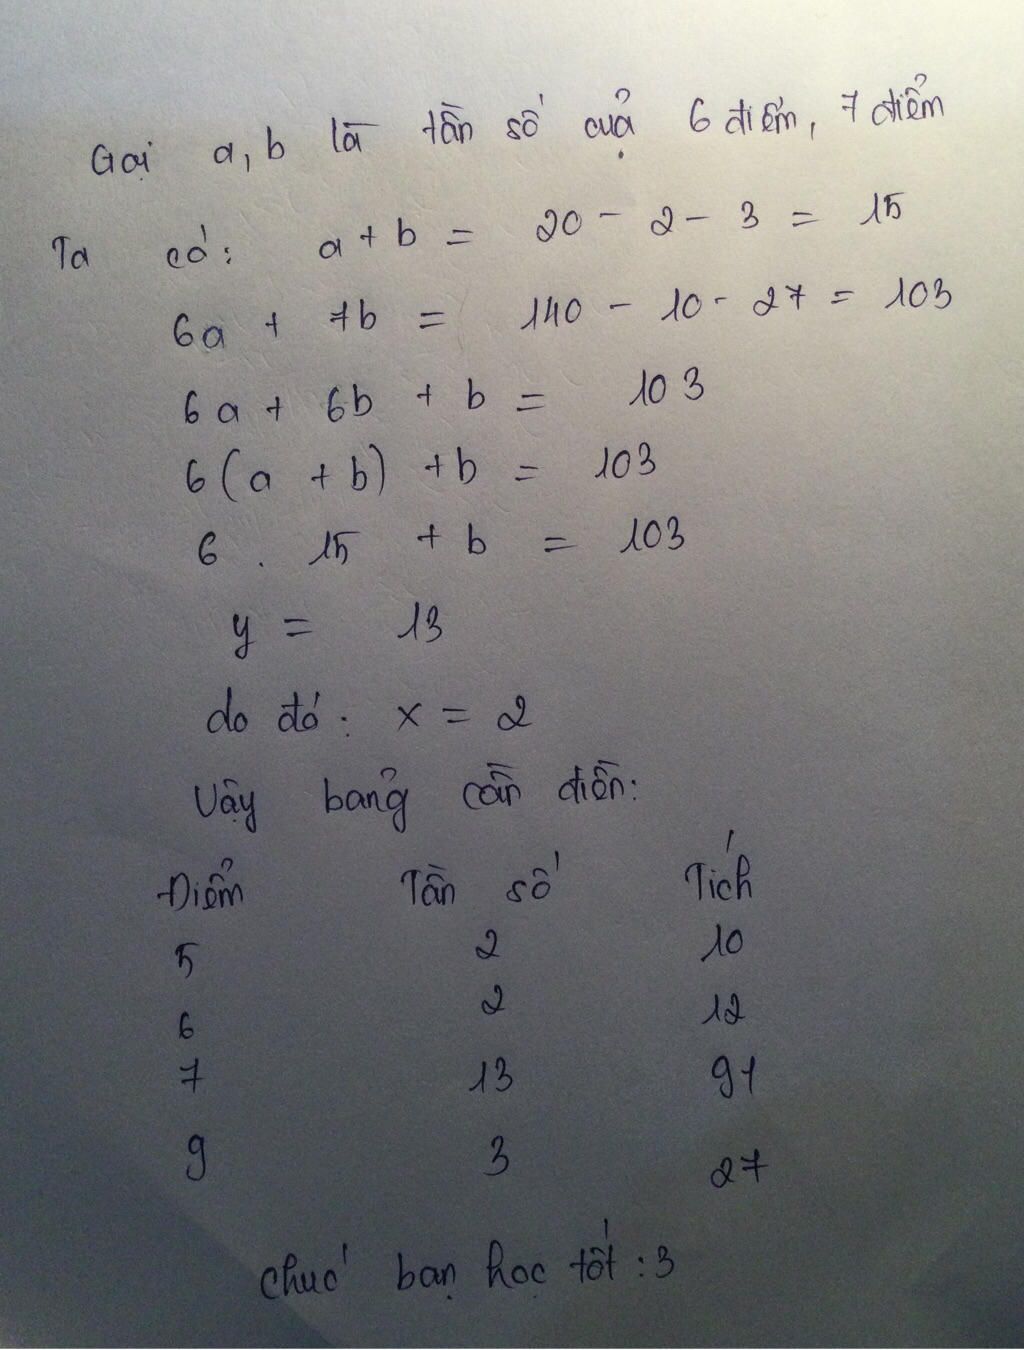 Gọi a, b là tần số của 6 điểm, 7 điểm
Ta có: a + b = 20 - 2 - 3 = 15
6a + 7b = 140 - 10 - 27 = 103
6a + 6b + b = 103
6(a + b) + b = 103
6 . 15 + b = 103
y = 13
do đó: x = 2
Vậy bảng cần điền:
Điểm Tần số Tích
5 2 10
6 2 12
7 13 91
9 3 27
Chúc bạn học tốt :3